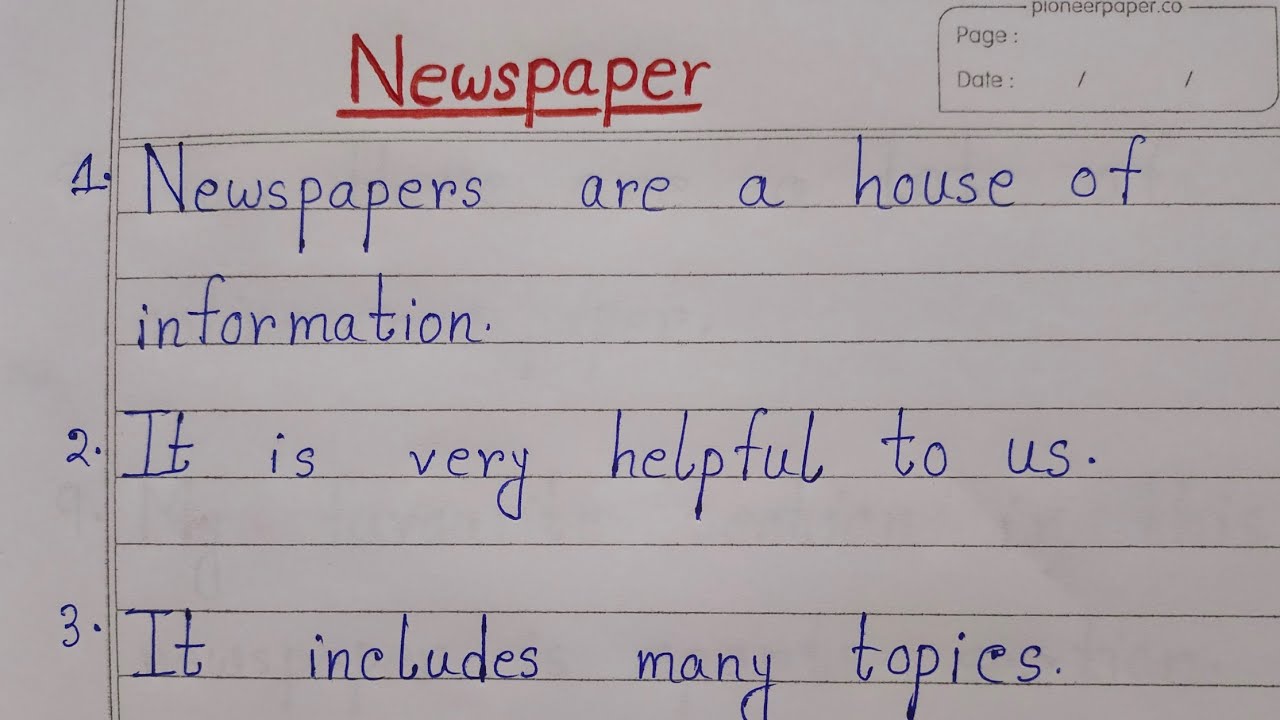 pioneerpaper.co
Page :
Date : / /
Newspaper
1. Newspapers are a house of
information.
2. It is very helpful to us.
3. It includes many topics.